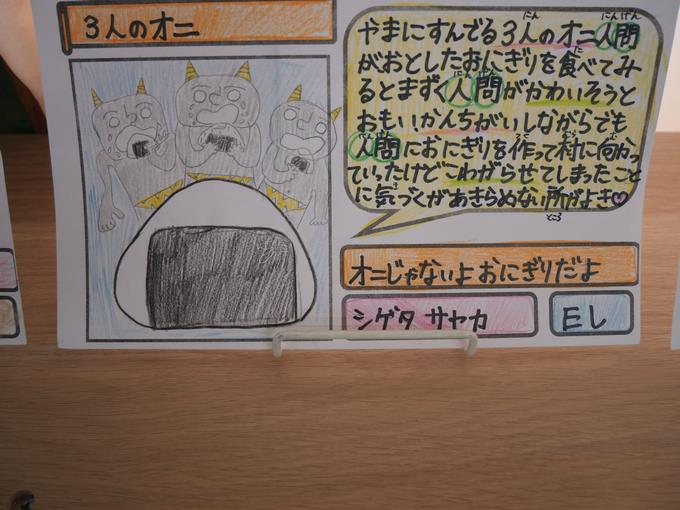 3人のオニ
やまにすんでる3人のオニ人間
がおとしたおにぎりを食べてみ
るとまずく人間がかわいそうと
おもいかんちがいしながらでも
人間におにぎりを作って村に向かっ
ていったけどこわがらせてしまったこと
に気づくがあきらめない所がよき
オニじゃないよおにぎりだよ
シゲタ サヤカ
Eし